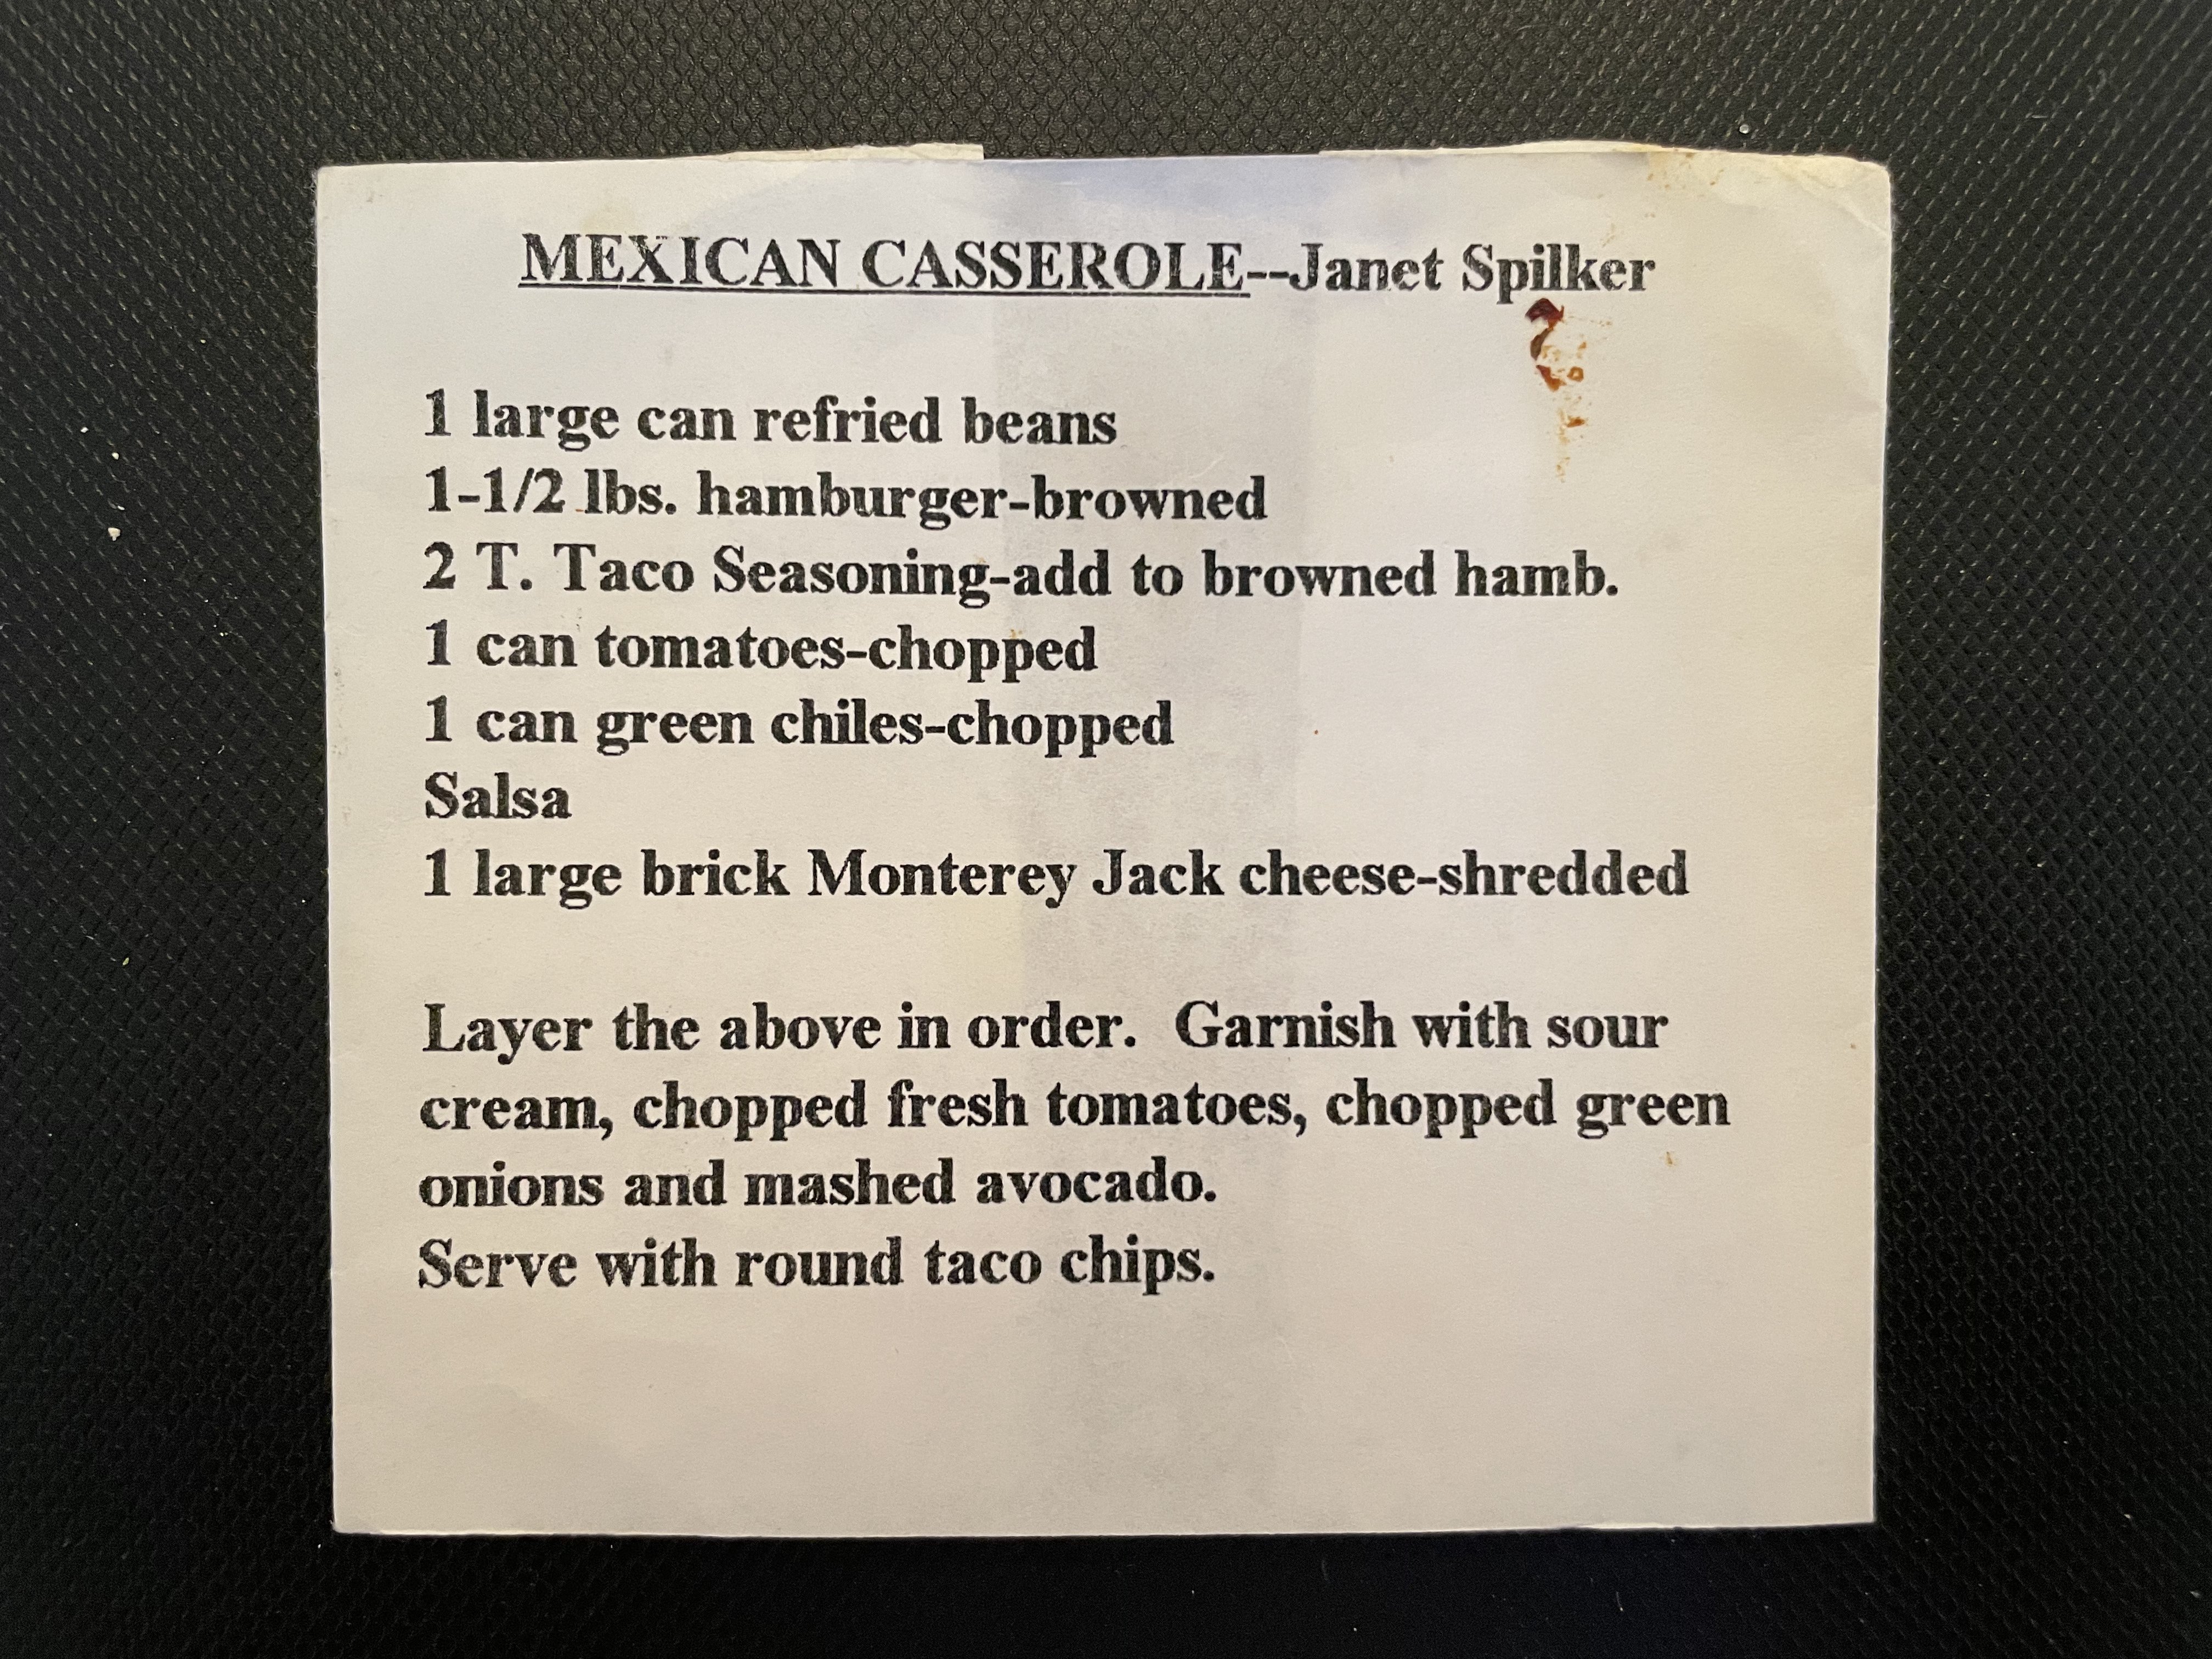 MEXICAN CASSEROLE--Janet Spilker
1 large can refried beans
1-1/2 lbs. hamburger-browned
2 T. Taco Seasoning-add to browned hamb.
1 can tomatoes-chopped
1 can green chiles-chopped
Salsa
1 large brick Monterey Jack cheese-shredded
Layer the above in order.  Garnish with sour
cream, chopped fresh tomatoes, chopped green
onions and mashed avocado.
Serve with round taco chips.